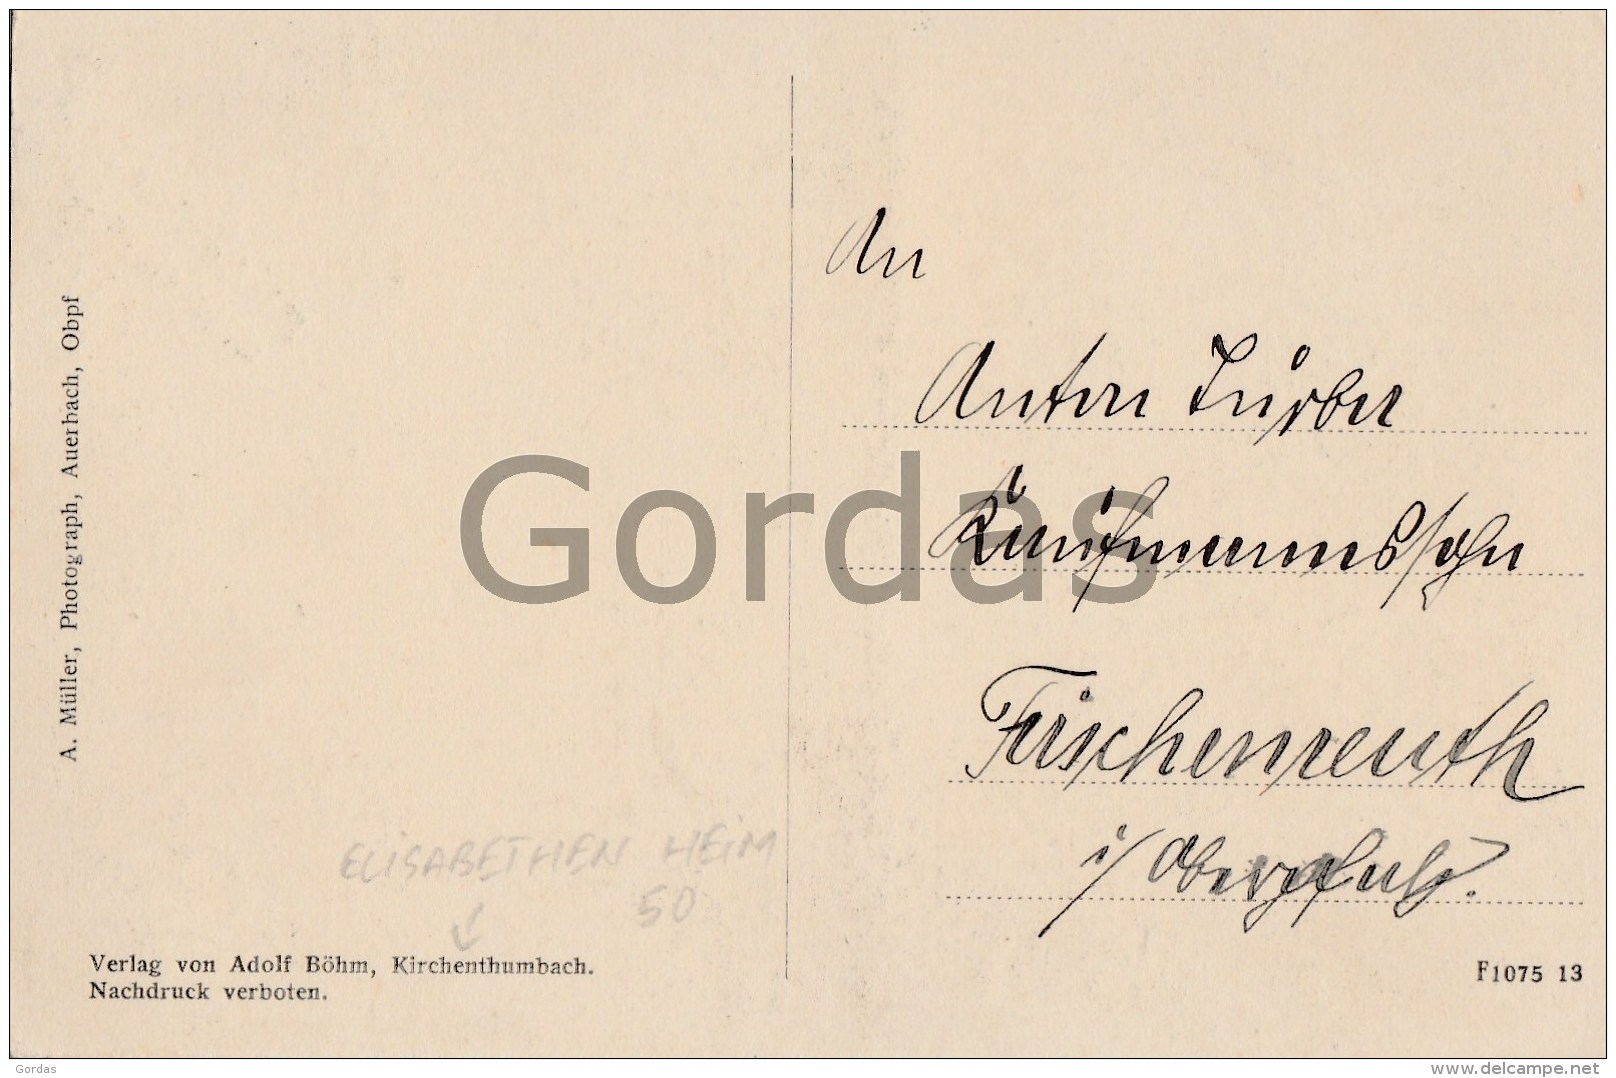 A. Müller, Photograph, Auerbach, Obpf
An
Anton
Kaufmannssohn
i/ Oberpfalz.
Gordas
ELISABETHEN HEIM
50
Verlag von Adolf Böhm, Kirchenthumbach.
Nachdruck verboten.
F1075 13
Gordas
www.delcampe.net